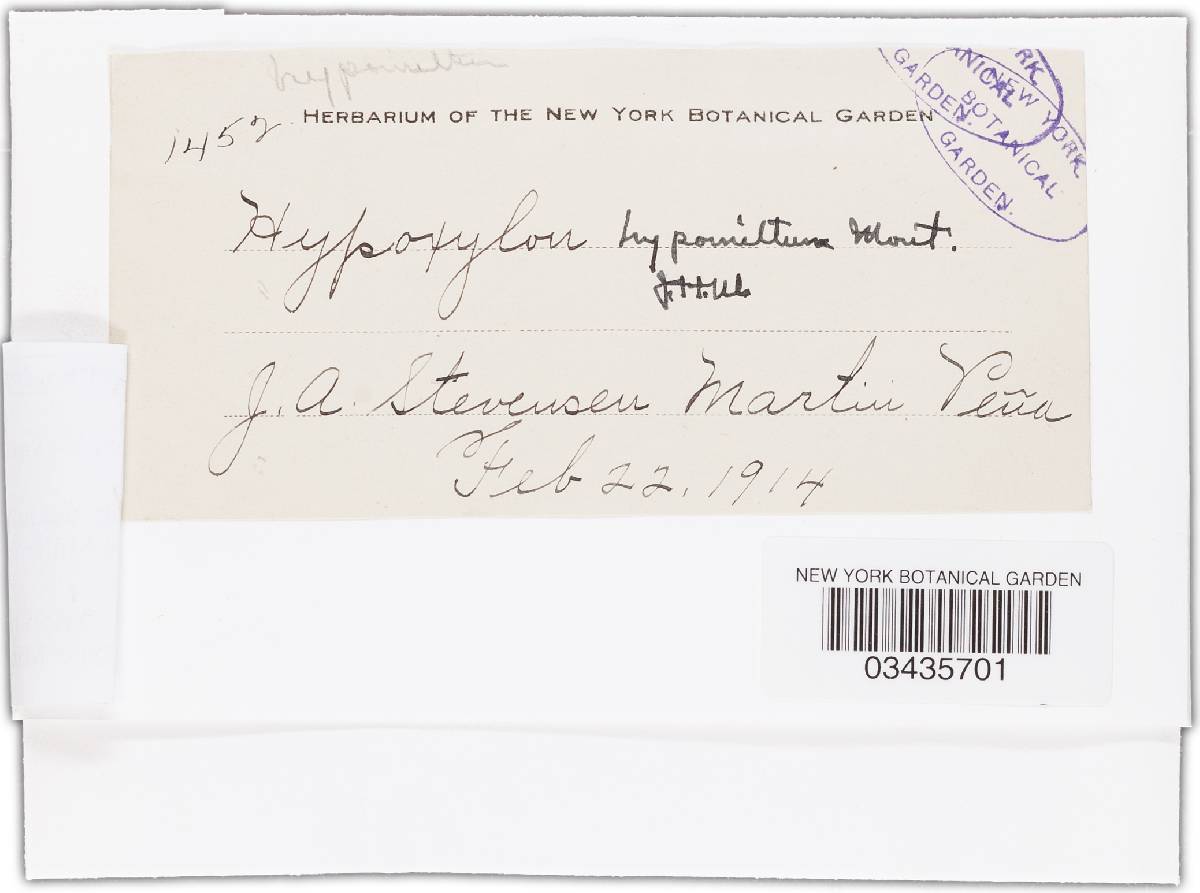 hypomiltum
HERBARIUM OF THE NEW YORK BOTANICAL GARDEN
1452
Hypoxylon hypomiltum Mont.
J.H.M.
J. A. Stevensen Martin Peña
Feb 22, 1914
RK.
ANICAL
GARDEN.
NEW YORK
BOTANICAL
GARDEN.
NEW YORK BOTANICAL GARDEN
03435701